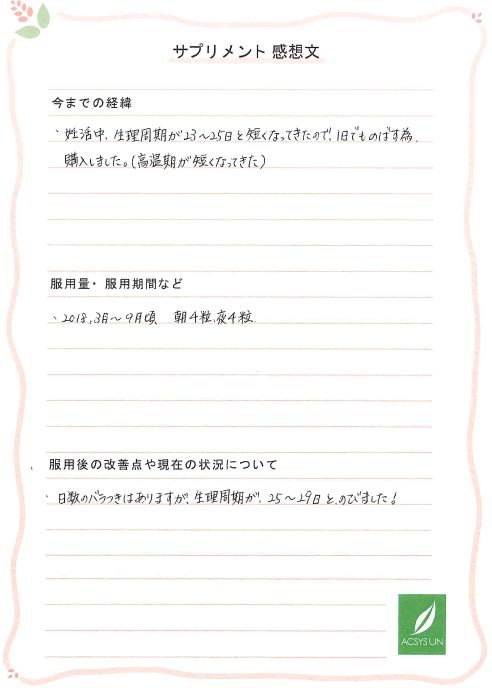 サプリメント 感想文
今までの経緯
・妊活中、生理周期が23〜25日と短くなってきたので、1日でものばす為、
購入しました。(高温期が短くなってきた)
服用量・服用期間など
・2018.3月〜9月頃 朝4粒、夜4粒
服用後の改善点や現在の状況について
・日数のバラつきはありますが、生理周期が、25〜29日と、のびました!
ACSYSUN